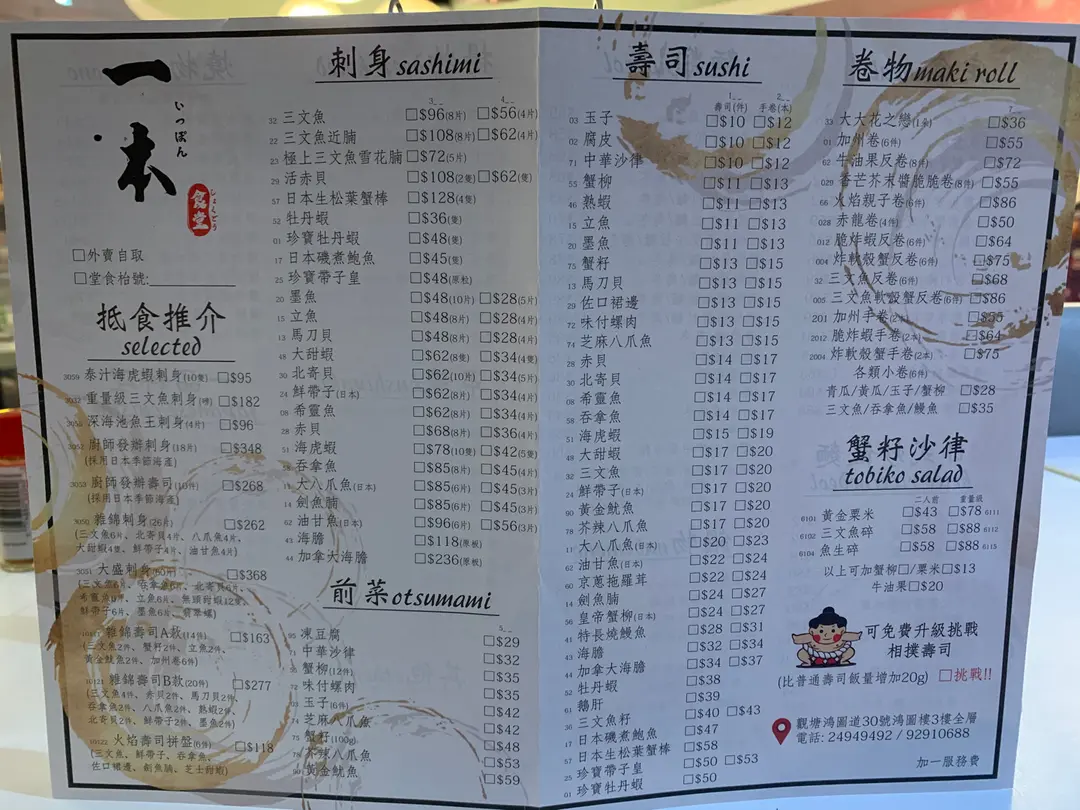 一本
いっぽん
食堂
しょくどう
□外賣自取
□堂食枱號:
抵食推介
selected
3059 泰汁海虎蝦刺身(10隻) □$95
重量級三文魚刺身 □$182
深海池魚王刺身(4片) □$96
3052 廚師發辦刺身(18片) □$348
(採用日本季節海產)
3053 廚師發辦壽司(10件) □$268
(採用日本季節海產)
3050 雜錦刺身(26片) □$262
(三文魚6片、北寄貝4片、八爪魚4片、
大甜蝦4隻、鮮帶子4片、油甘魚4片)
3051 大盛刺身(60片) □$368
(三文魚6片、吞拿魚6片、北寄貝6片、
希靈魚6片、立魚6片、無頭甜蝦12隻、
鮮帶子6片、墨魚6片、翡翠螺)
雜錦壽司A款(14件) □$163
(三文魚2件、蟹籽2件、立魚2件、
黃金魷魚2件、加州卷6件)
10121 雜錦壽司B款(20件) □$277
(三文魚4件、赤貝2件、馬刀貝2件、
吞拿魚2件、八爪魚2件、熟蝦2件、
北寄貝2件、鮮帶子2件、墨魚2件)
10122 火焰壽司拼盤(6件) □$118
(三文魚、鮮帶子、吞拿魚、
佐口裙邊、劍魚腩、芝士甜蝦)
刺身sashimi
3__ 4__
32 三文魚 □$96(8片) □$56(4片)
22 三文魚近腩 □$108(8片) □$62(4片)
23 極上三文魚雪花腩 □$72(5片)
29 活赤貝 □$108(2隻) □$62(隻)
57 日本生松葉蟹棒 □$128(4隻)
52 牡丹蝦 □$36(隻)
01 珍寶牡丹蝦 □$48(隻)
17 日本磯煮鮑魚 □$45(隻)
25 珍寶帶子皇 □$48(原粒)
20 墨魚 □$48(10片) □$28(5片)
15 立魚 □$48(8片) □$28(4片)
13 馬刀貝 □$48(8片) □$28(4片)
48 大甜蝦 □$62(8隻) □$34(4隻)
30 北寄貝 □$62(10片) □$34(5片)
24 鮮帶子(日本) □$62(8片) □$34(4片)
08 希靈魚 □$62(8片) □$34(4片)
28 赤貝 □$68(8片) □$36(4片)
51 海虎蝦 □$78(10隻) □$42(5隻)
58 吞拿魚 □$85(8片) □$45(4片)
11 大八爪魚(日本) □$85(6片) □$45(3片)
14 劍魚腩 □$85(6片) □$45(3片)
62 油甘魚(日本) □$96(6片) □$56(3片)
43 海膽 □$118(原板)
44 加拿大海膽 □$236(原板)
前菜otsumami
5__
95 凍豆腐 □$29
中華沙律 □$32
蟹柳(12件) □$35
72 味付螺肉 □$35
玉子(6件) □$42
芝麻八爪魚 □$42
75 蟹籽(100g) □$48
芥辣八爪魚 □$53
黃金魷魚 □$59
壽司sushi
1__ 2__
壽司(件) 手卷(本)
03 玉子 □$10 □$12
02 腐皮 □$10 □$12
71 中華沙律 □$10 □$12
55 蟹柳 □$11 □$13
46 熟蝦 □$11 □$13
15 立魚 □$11 □$13
20 墨魚 □$11 □$13
75 蟹籽 □$13 □$15
13 馬刀貝 □$13 □$15
29 佐口裙邊 □$13 □$15
72 味付螺肉 □$13 □$15
74 芝麻八爪魚 □$13 □$15
28 赤貝 □$14 □$17
30 北寄貝 □$14 □$17
08 希靈魚 □$14 □$17
58 吞拿魚 □$14 □$17
51 海虎蝦 □$15 □$19
48 大甜蝦 □$17 □$20
32 三文魚 □$17 □$20
24 鮮帶子(日本) □$17 □$20
90 黃金魷魚 □$17 □$20
78 芥辣八爪魚 □$17 □$20
11 大八爪魚(日本) □$20 □$23
62 油甘魚(日本) □$22 □$24
60 京蔥拖羅茸 □$22 □$24
14 劍魚腩 □$24 □$27
56 皇帝蟹柳(日本) □$24 □$27
41 特長燒鰻魚 □$28 □$31
43 海膽 □$32 □$34
44 加拿大海膽 □$34 □$37
52 牡丹蝦 □$38
61 鵝肝 □$39
36 三文魚籽 □$40 □$43
17 日本磯煮鮑魚 □$47
57 日本生松葉蟹棒 □$58
25 珍寶帶子皇 □$50 □$53
01 珍寶牡丹蝦 □$50
卷物maki roll
7__
33 大大花之戀(1条) □$36
01 加州卷(6件) □$55
62 牛油果反卷(8件) □$72
029 香芒芥末醬脆脆卷(8件) □$55
66 火焰親子卷(6件) □$86
028 赤龍卷(4件) □$50
012 脆炸蝦反卷(6件) □$64
004 炸軟殼蟹反卷(6件) □$75
32 三文魚反卷(6件) □$68
005 三文魚軟殼蟹反卷(6件) □$86
201 加州手卷(2本) □$55
2012 脆炸蝦手卷(2本) □$64
2004 炸軟殼蟹手卷(2本) □$75
各類小卷(6件)
青瓜/黃瓜/玉子/蟹柳 □$28
三文魚/吞拿魚/鰻魚 □$35
蟹籽沙律
tobiko salad
二人前 重量級
6101 黃金粟米 □$43 □$78 6111
6102 三文魚碎 □$58 □$88 6112
6104 魚生碎 □$58 □$88 6115
以上可加蟹柳□/粟米□$13
牛油果□$20
可免費升級挑戰
相撲壽司
(比普通壽司飯量增加20g) □挑戰!!
觀塘鴻圖道30號鴻圖樓3樓全層
電話: 24949492 / 92910688
加一服務費